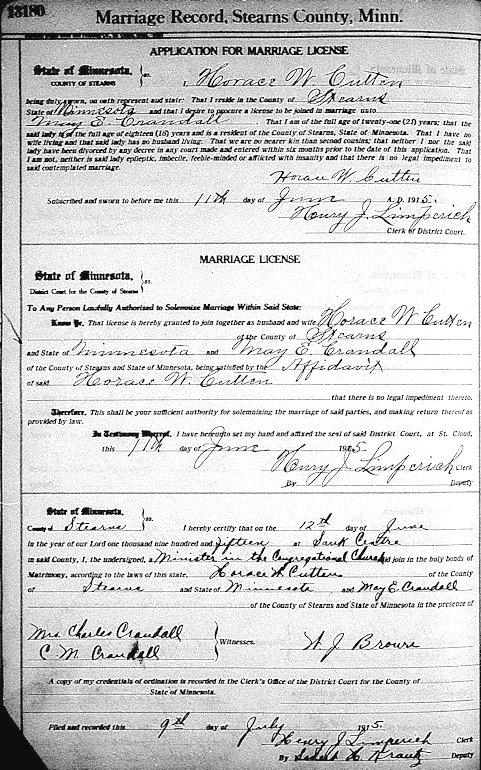 13180
Marriage Record, Stearns County, Minn.
APPLICATION FOR MARRIAGE LICENSE
State of Minnesota, } ss.
COUNTY OF STEARNS
I, Horace W Cutten
being duly sworn, on oath represent and state: That I reside in the County of Stearns
State of Minnesota and that I desire to procure a license to be joined in marriage unto
May E. Crandall That I am of the full age of twenty-one (21) years; that the
said lady is of the full age of eighteen (18) years and is a resident of the County of Stearns, State of Minnesota. That I have no
wife living and that said lady has no husband living. That we are no nearer kin than second cousins; that neither I nor the said
lady have been divorced by any decree in any court made and entered within six months prior to the date of this application. That
I am not, neither is said lady epileptic, imbecile, feeble-minded or afflicted with insanity and that there is no legal impediment to
said contemplated marriage.
Horace W. Cutten
Subscribed and sworn to before me this 11th day of June A. D. 1915.
Henry J. Limperich
Clerk of District Court.
MARRIAGE LICENSE
State of Minnesota, } ss.
District Court for the County of Stearns
To Any Person Lawfully Authorized to Solemnize Marriage Within Said State:
Know Ye, That license is hereby granted to join together as husband and wife Horace W Cutten
of the County of Stearns
and State of Minnesota and May E. Crandall
of the County of Stearns and State of Minnesota, being satisfied by the Affidavit
of said Horace W. Cutten
that there is no legal impediment thereto.
Therefore, This shall be your sufficient authority for solemnizing the marriage of said parties, and making return thereof as
provided by law.
In Testimony Whereof, I have hereunto set my hand and affixed the seal of said District Court, at St. Cloud,
this 11th day of June 1915.
Henry J. Limperich Clerk
By Deputy
State of Minnesota, } ss.
County of Stearns I hereby certify that on the 12th day of June
in the year of our Lord one thousand nine hundred and fifteen at Sauk Centre
in said County, I, the undersigned, a Minister in the Congregational Church did join in the holy bonds of
Matrimony, according to the laws of this state, Horace W Cutten of the County
of Stearns and State of Minnesota and May E. Crandall
of the County of Stearns and State of Minnesota in the presence of
Mrs. Charles Crandall
C M Crandall } Witnesses. W. J. Browse
A copy of my credentials of ordination is recorded in the Clerk's Office of the District Court for the County of
State of Minnesota.
Filed and recorded this 9th day of July 1915.
Henry J Limperich Clerk
By Krautz Deputy